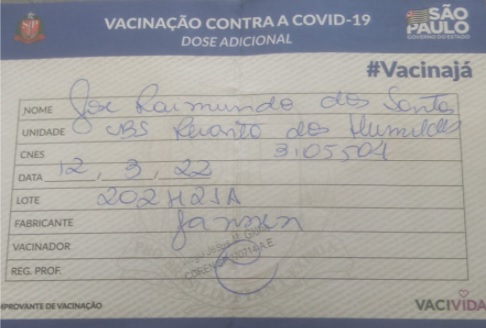 VACINAÇÃO CONTRA A COVID-19
DOSE ADICIONAL
SÃO
PAULO
GOVERNO DO ESTADO
#Vacinajá
NOME Jose Raimundo dos Santos
UNIDADE UBS Recanto dos Humildes
CNES 3105504
DATA 12, 3, 22
LOTE 202H21A
FABRICANTE Janssen
VACINADOR
REG. PROF.
MPROVANTE DE VACINAÇÃO
VACIVIDA